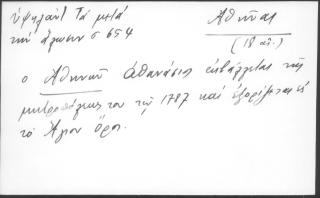 ὑψηλάντ Τὰ μετὰ
τὴν ἅλωσιν σ 654
Ἀθήνας
(18 αἰ.)
ὁ Ἀθηνῶν Ἀθανάσιος ἐκβάλλεται τῆς
μητροπόλεώς του τῷ 1787 καὶ ἐξορίζεται εἰς
τὸ Ἅγιον Ὄρος.